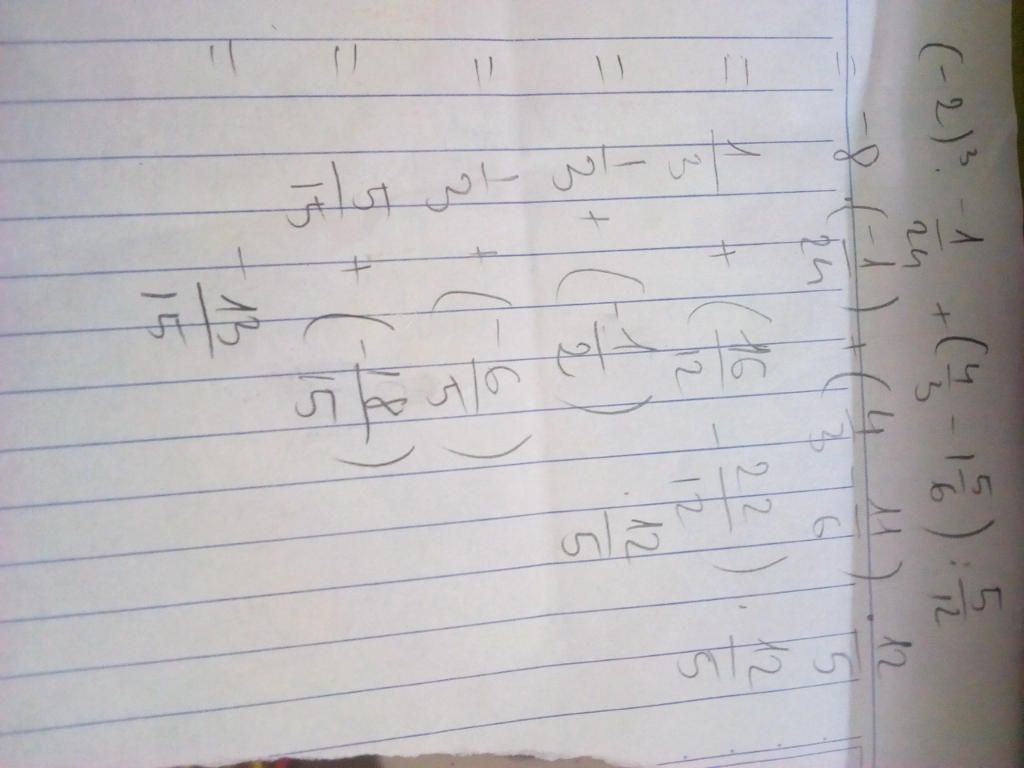 (-2)³ · -1/24 + (4/3 - 1 5/6) : 5/12
= -8 · (-1/24) + (4/3 - 11/6) · 12/5
= 1/3 + (16/12 - 22/12) · 12/5
= 1/3 + (-1/2) · 12/5
= 1/3 + (-6/5)
= 5/15 + (-18/15)
= - 13/15